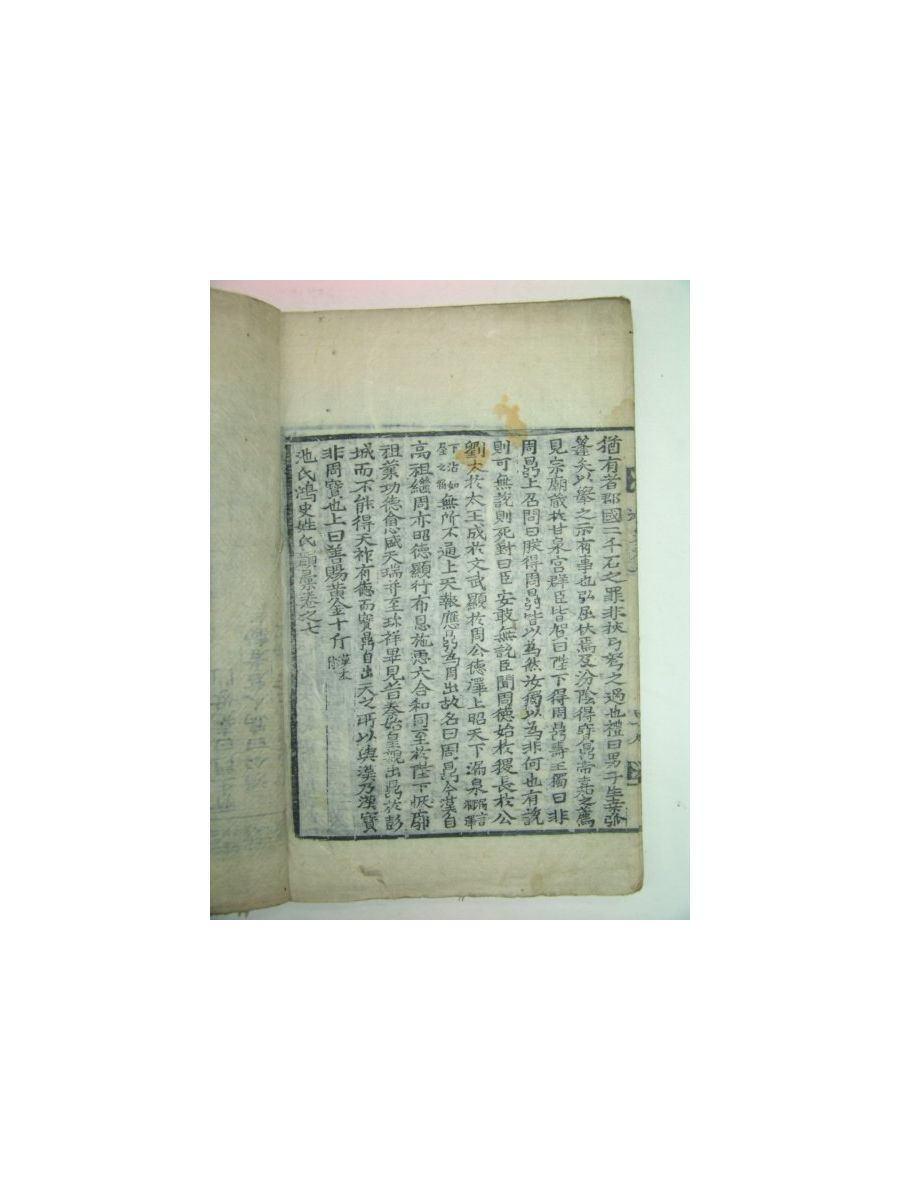 猶有者郡國二千石之罪非挾弓弩之過也禮曰男子生桑弧
蓬矢以擧之示有事也弘屈伏焉及汾陰得寶鼎帝嘉之薦
見宗廟藏於甘泉宮群臣皆賀曰陛下得周鼎壽王獨曰非
周鼎上召問曰朕得周鼎皆以爲然汝獨以爲非何也有說
則可無說則死對曰臣安敢無說臣聞周德始於后稷長於公
劉大於太王成於文武顯於周公德澤上昭天下漏泉
無所不通上天報應鼎爲周出故名曰周鼎今漢自
高祖繼周亦昭德顯行布恩施惠六合和同至於陛下恢廓
祖業功德愈盛天瑞并至珍祥畢見昔秦始皇親出鼎於彭
城而不能得天祚有德而寶鼎自出天之所以與漢乃漢寶
非周寶也上曰善賜黃金十斤
池氏鴻史姓氏顯景卷之七